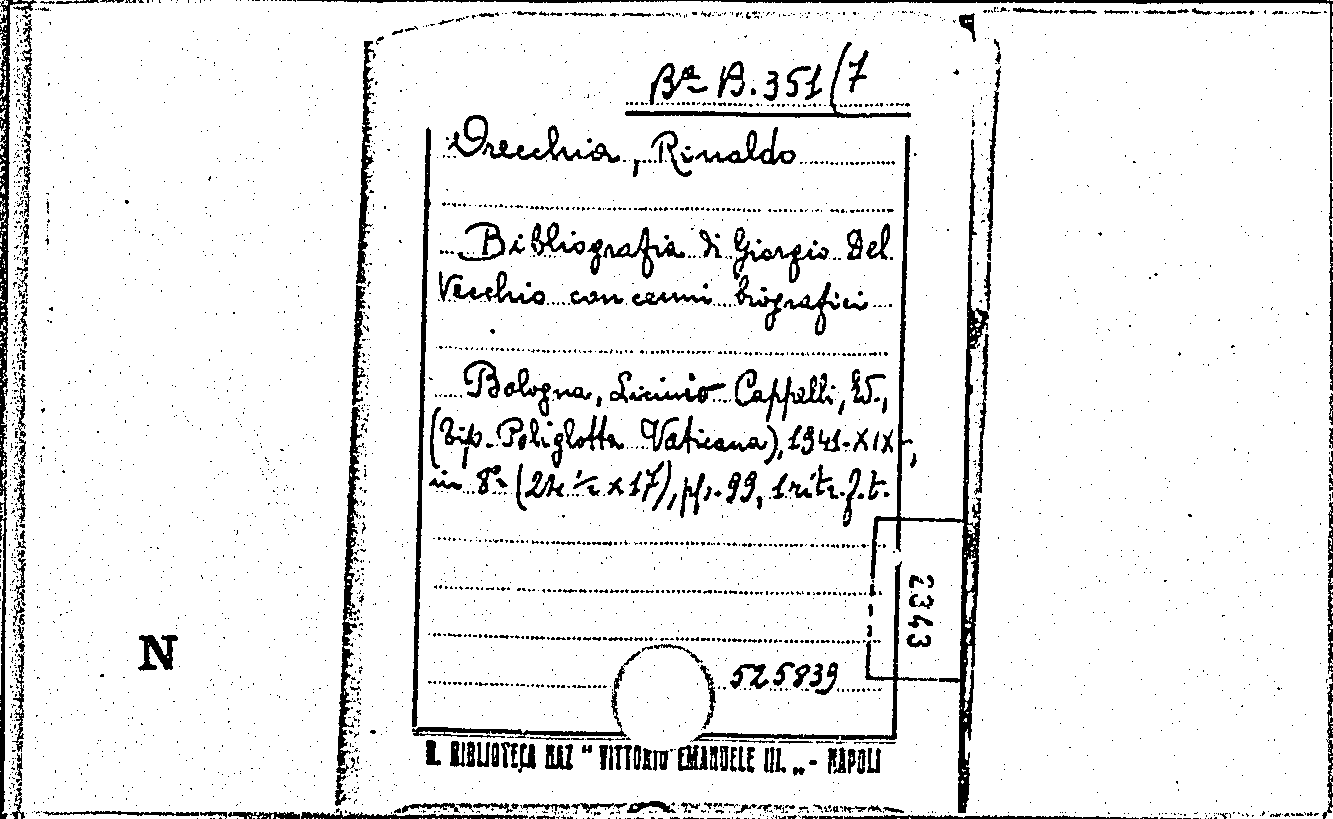 Bª B. 351 (7
Orecchia, Rinaldo
Bibliografia di Giorgio Del
Vecchio con cenni biografici
Bologna, Licinio Cappelli, Ed.,
(Tip. Poliglotta Vaticana), 1941-XIX-,
in 8° ( ½ x 17), pp. 99, 1 ritr. f. t.
2343
N
525839
R. BIBLIOTECA NAZ " VITTORIO EMANUELE III. „ - NAPOLI